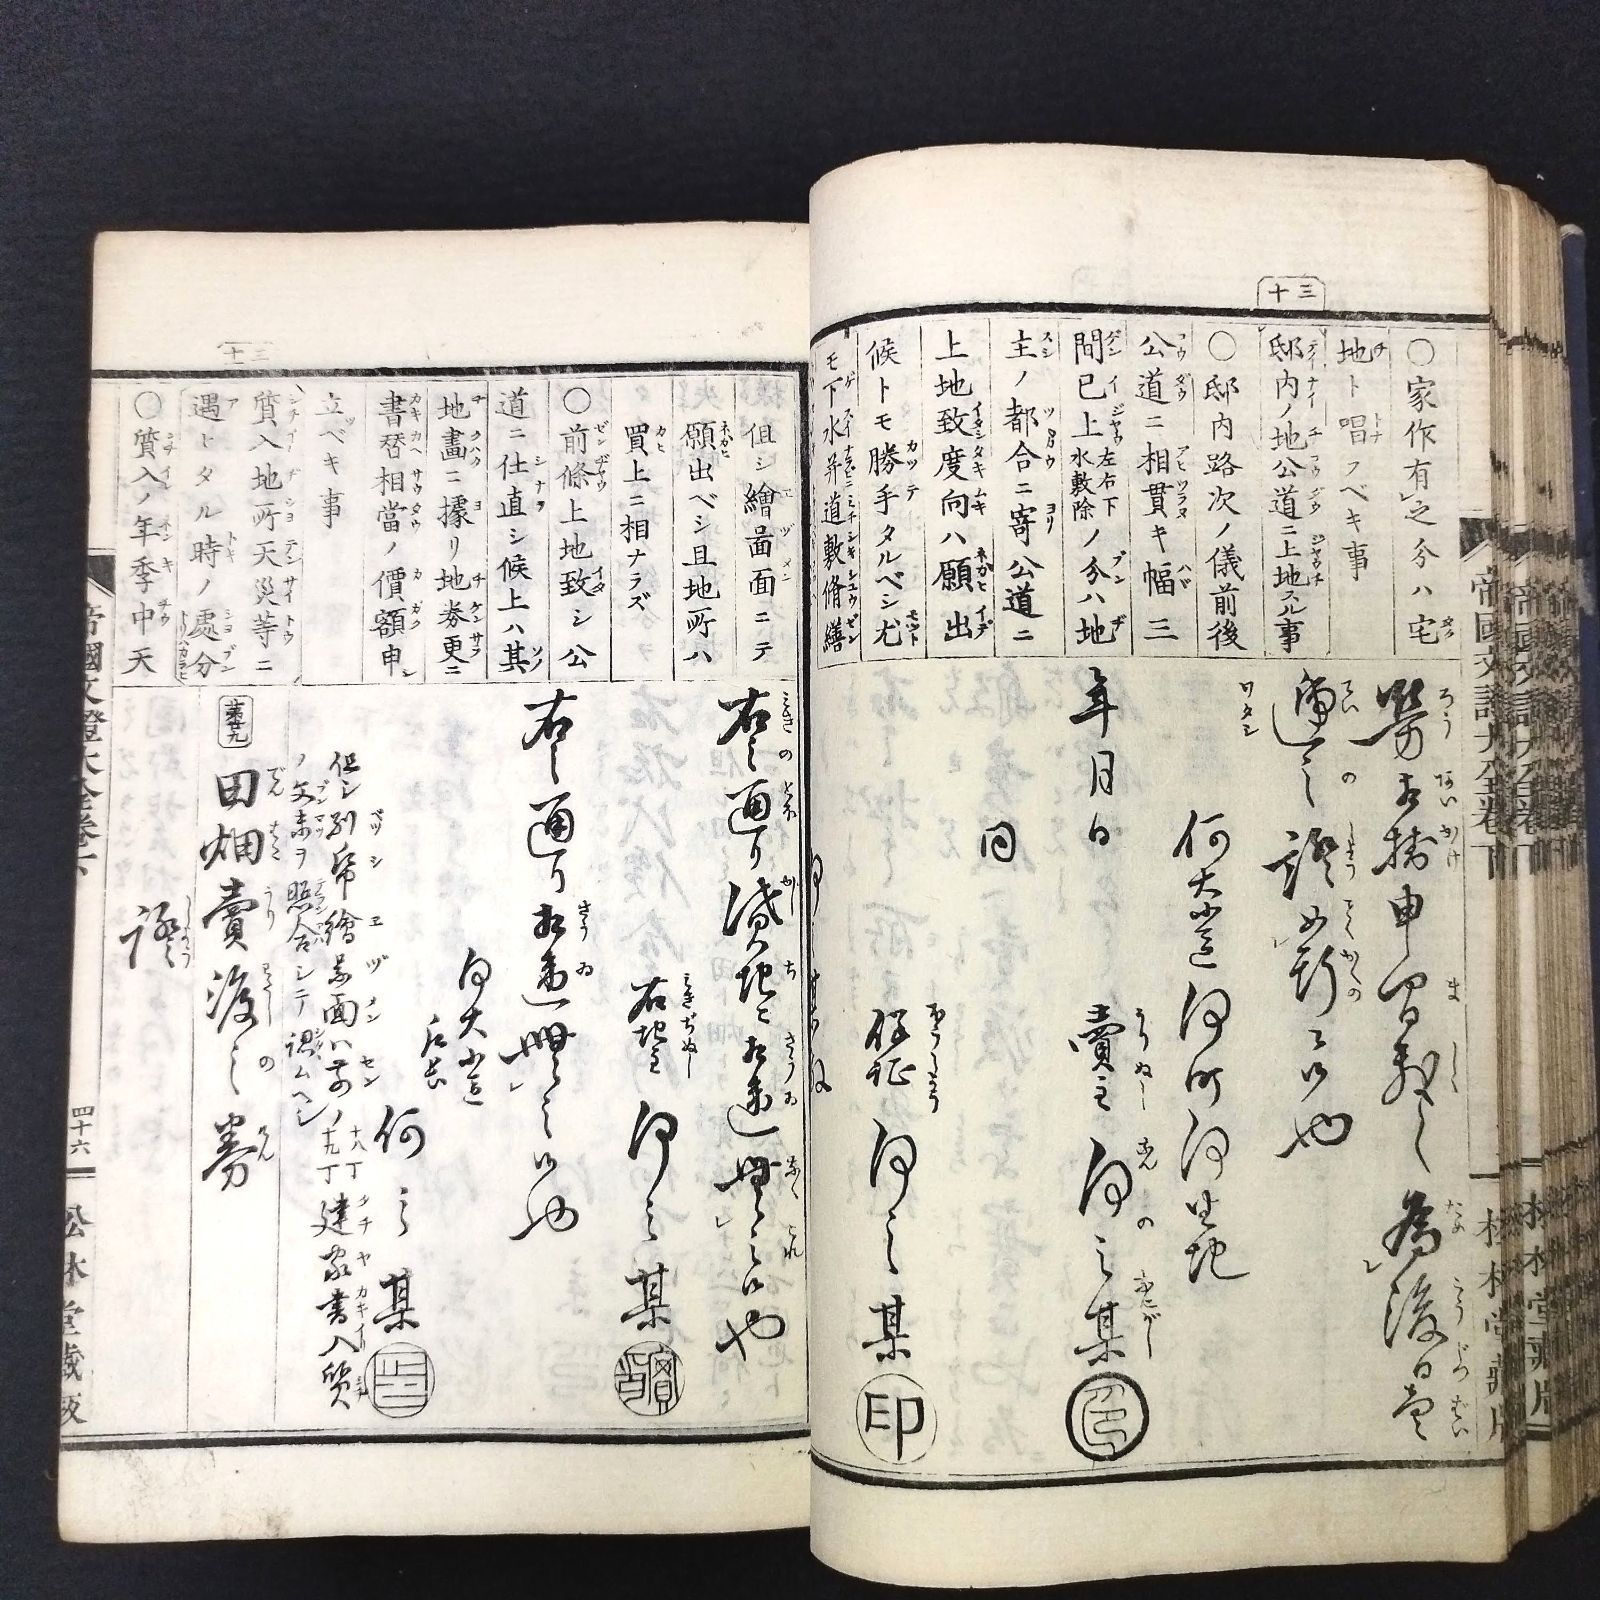 三十
〇家作有之分ハ宅
地ト唱フベキ事
邸内ノ地公道ニ上地スル事
〇邸内路次ノ儀前後
公道ニ相貫キ幅三
間已上左右下水敷除ノ分ハ地
主ノ都合ニ寄公道ニ
上地致度向ハ願出
候トモ勝手タルベシ尤
モ下水并道敷脩繕
年月日
何大小區何町何番地
賣主 何之某
同
保証 何之某 印
帝國文證大全卷下
三十
但シ繪畾面ニテ
願出ベシ且地所ハ
買上ニ相ナラズ
〇前條上地致シ公
道ニ仕直シ候上ハ其
地畫ニ據リ地券更ニ
書替相當ノ價額申
立ベキ事
質入地所天災等ニ
遇ヒタル時ノ處分
〇質入ノ年季中天
右之通り貸地ニ相違無之候也
右地主 何之某
右之通り相違無之候也
何大小區
戸長
何之某
但シ別紙繪畾面ハ前ノ十八丁十九丁建家書入質
ノ文末ヲ照合シテ認ムヘシ
第廿九
田畑賣渡之券
證
帝國文證大全卷下
四十六
松林堂藏版